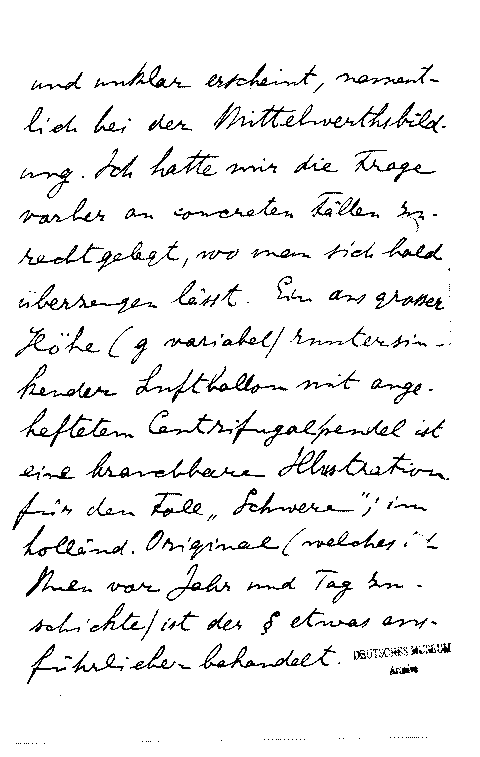 und unklar erscheint, nament-
lich bei der Mittelwerthsbild-
ung. Ich hatte mir die Frage
vorher an concreten Fällen zu-
rechtgelegt, wo man sich bald
überzeugen lässt. Ein aus grosser
Höhe (g variabel) runtersin-
kender Luftballon mit ange-
heftetem Centrifugalpendel ist
eine brauchbare Illustration
für den Fall „Schwere“; im
holländ. Original (welches i
Ihnen vor Jahr und Tag zu-
schickte) ist der § etwas aus-
führlicher behandelt.
DEUTSCHES MUSEUM
Archiv